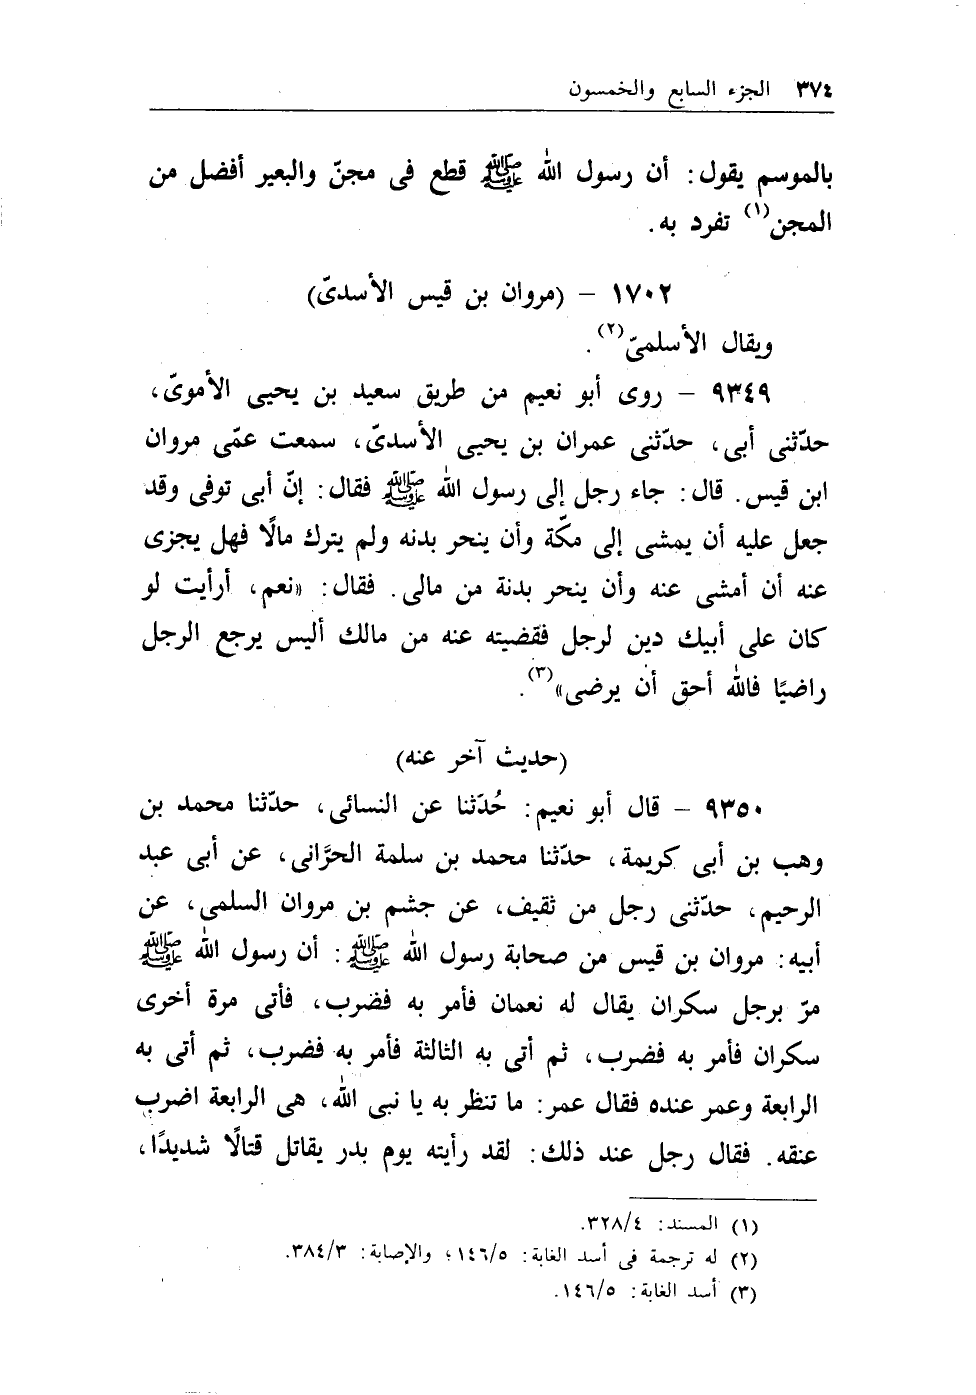 ٣٧٤ الجزء السابع والخمسون
بالموسم يقول: أن رسول الله ﷺ قطع فى مجنّ والبعير أفضل من
المجن(١) تفرد به.
١٧٠٢ – (مروان بن قيس الأسدىّ)
ويقال الأسلمىّ(٢).
٩٣٤٩ – روى أبو نعيم من طريق سعيد بن يحيى الأموىّ،
حدّثنى أبى، حدّثنى عمران بن يحيى الأسدىّ، سمعت عمّى مروان
ابن قيس. قال: جاء رجل إلى رسول الله ﷺ فقال: إنّ أبى توفى وقد
جعل عليه أن يمشى إلى مكّة وأن ينحر بدنه ولم يترك مالًا فهل يجزى
عنه أن أمشى عنه وأن ينحر بدنة من مالى. فقال: «نعم، أرأيت لو
كان على أبيك دين لرجل فقضيته عنه من مالك أليس يرجع الرجل
راضيًا فالله أحق أن يرضى»(٣).
(حديث آخر عنه)
٩٣٥٠ – قال أبو نعيم: حُدّثنا عن النسائى، حدّثنا محمد بن
وهب بن أبى كريمة، حدّثنا محمد بن سلمة الحرَّانى، عن أبى عبد
الرحيم، حدّثنى رجل من ثقيف، عن جشم بن مروان السلمى، عن
أبيه: مروان بن قيس من صحابة رسول الله ﷺ: أن رسول الله ﷺ
مرّ برجل سكران يقال له نعمان فأمر به فضرب، فأتى مرة أخرى
سكران فأمر به فضرب، ثم أتى به الثالثة فأمر به فضرب، ثم أتى به
الرابعة وعمر عنده فقال عمر: ما تنظر به يا نبى الله، هى الرابعة اضرب
عنقه. فقال رجل عند ذلك: لقد رأيته يوم بدر يقاتل قتالًا شديدًا،
(١) المسند: ٣٢٨/٤.
(٢) له ترجمة فى أسد الغابة: ١٤٦/٥؛ والإصابة: ٣٨٤/٣.
(٣) أسد الغابة: ١٤٦/٥.